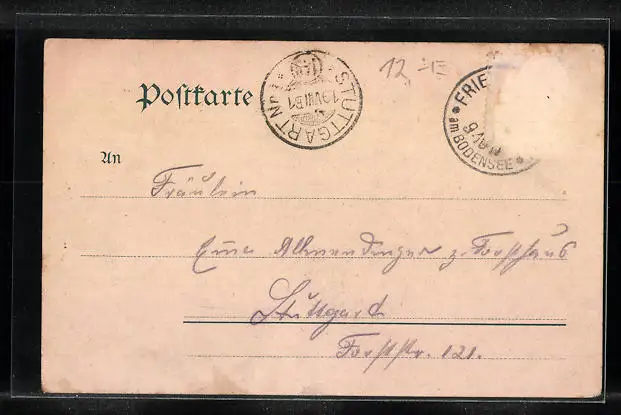 12
Postkarte
STUTTGART Nr. 1
19 VIII
FRIE
am BODENSEE
An
Fräulein
Allmendinger z. Forsthaus
Stuttgard
Forststr. 121.